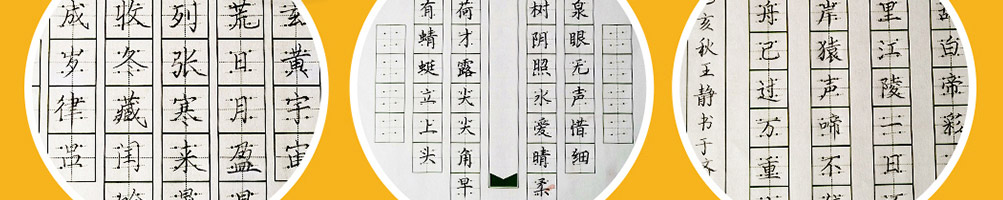 玄黄宇宙
荒日月盈
列张寒来
收冬藏闰
成岁律吕
泉眼无声惜细
树阴照水爱晴柔
荷才露尖尖角早
有蜻蜓立上头
白帝彩
里江陵一日
岸猿声啼不
舟已过万重
亥秋王静书于